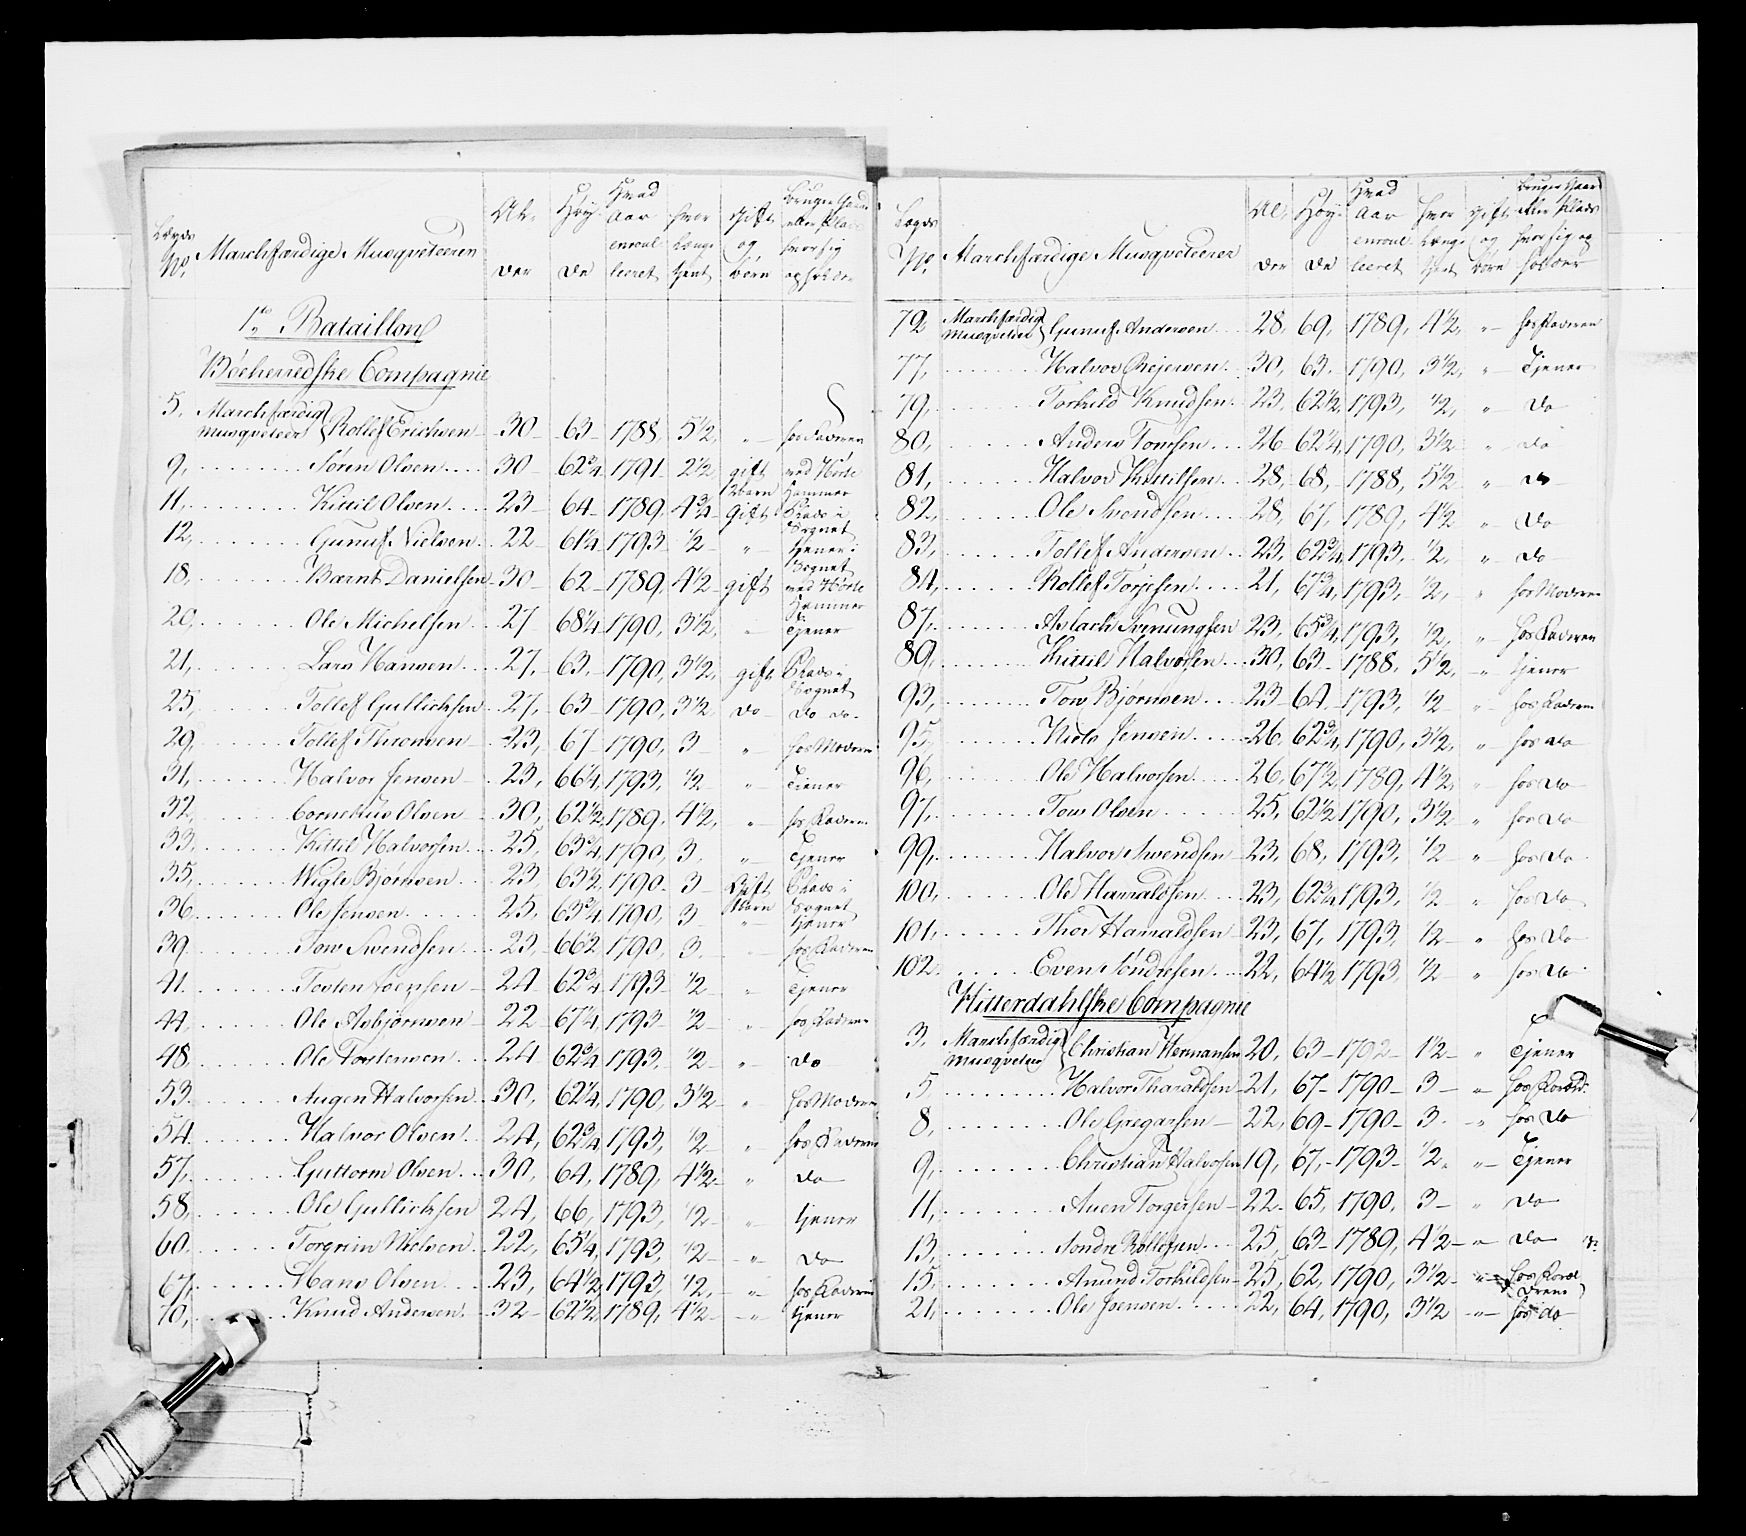 Lægds No. Marchfærdige Musqveteerer Al- der Høy- de Hvad Aar enroul- leeret hvor Længe tient Gift og børn Bruger Gaard eller Plads hvor sig opholder
1te Bataillon
Böeherredske Compagnie
5, Marchfærdig Musqveteer Rollef Erichsen 30 63 1788, 5 1/2, " hos Faderen
9, Søren Olsen 30 62 3/4 1791 2 1/2 gift 2 børn ved Hørte Hammer
11, Kittil Olsen 23 64 1789 4 3/4 Gift Plads i Sognet
12, Gunuf Nielsen 22 61 1/4 1793 1/2 " tjener i Sognet
18, Bærnt Danielsen 30 62 1789, 4 1/2 gift ved Hørte Hammer
20, Ole Michelsen 27 68 1/4 1790, 3 1/2, " Tjener
21, Lars Hansen 27, 63, 1790, 3 1/2, gift Plads i Sognet
25, Tollef Gullichsen 27, 63 1790, 3 1/2 do do do
29, Tollef Thronsen 23, 67 1790, 3 " hos Moderen
31, Halvor Jensen 23, 66 1/4, 1793, 1/2 " Tjener
32, Cornelius Olsen 30, 62 1/2, 1789, 4 1/2, " hos Faderen
33, Kittil Halvorsen 25, 63 3/4, 1790, 3. " Tjener
35, Wigle Bjørnsen 23 63 1/2, 1790 3 Gift Børn Plads i Sognet
36, Ole Jensen 25, 63 3/4, 1790, 3 " tjener
39 Tow Swendsen 23 66 1/2 1790, 3 " hos Faderen
41 Tosten 24 62 3/4, 1793 1/2 " Tjener
44, Ole Asbjørnsen 22 67 1/4, 1793 1/2 " hos Faderen
48 Ole Torstensen 24 62 3/4 1793, 1/2 " do
53 Augen Halvorsen 30, 62 1/4, 1790, 3 1/2 " hos Moderen
54 Halvor Olsen 24, 62 3/4 1793, 1/2 " hos Faderen
57, Guttorm Olsen 30, 64, 1789, 4 1/2 " do
58, Ole Gullichsen 24, 66, 1793, 1/2 " tjener
60, Torgrim Nielsen 22, 65 1/4, 1793, 1/2 " do
67, Hans Olsen 23, 64 1/2, 1793, 1/2, " hos Faderen
70, Knud Andersen 32 62 1/2, 1789, 4 1/2 " tjener
Lægds No. Marchfærdige Musqveteerer Al- der Høy- de Hvad Aar enroul- leeret hvor Længe tient gift og børn Bruger Gaard eller Plads hvor sig op holder
72 Marchfærdig Musqveteer Gunuf Andersen 28, 69, 1789, 4 1/2, " hos Faderen
77, Halvor Rejersen 30, 63. 1790, 3 1/2, " Tjener
79, Torkild Knudsen 23, 62 1/2, 1793, 1/2, " do
80, Anders Tomsen 26 62 1/4, 1790, 3 1/2 " do
81, Halvor Kittilsen 28, 68, 1788, 5 1/2 " do
82, Ole Svendsen 28, 67, 1789, 4 1/2 " do
83, Tollef Andersen 23, 62 3/4, 1793, 1/2, " do
84, Rollef Torjesen 21, 67 3/4, 1793, 1/2, " hos Moderen
87, Aslach Svenungsen 23, 65 3/4, 1793, 1/2, " hos Faderen
89, Kittil Halvorsen 30, 63 1788, 5 1/2, " tjener
93, Tow Bjørnsen 23 64 1793, 1/2 " hos Faderen
95, Niels Jensen 26, 62 3/4, 1790, 3 1/2, " hos do
96, Ole Halvorsen 26, 67 1/2, 1789, 4 1/2, " hos do
97, Tow Olsen 25, 62 1/2 1790, 3 1/2 " hos do
99, Halvor Swendsen 23, 68, 1793, 1/2 " hos do
100, Ole Harraldsen 23, 62 3/4 1793, 1/2 " hos do
101, Thor Harraldsen 23, 67, 1793, 1/2 " hos do
102 Even Söndresen 22, 64 1/2 1793 1/2 " hos do
Hitterdahlske Compagnie
3, Marchfærdig Musqveteer Christian Hermansen 20, 63 1792 1 1/2 " Tjener
5 Halvor Tharaldsen 21, 67 1790 3 "
8, Ole Gregarsen 22, 69 1790 3. " hos do
9, Christian Halvorsen 19, 67, 1793 1/2. " Tjener
11, Auen Torgersen 22. 65, 1790, 3 " do
13, Sondre Rollefsen 25, 63 1789, 4 1/2 " do
15, Amund Torkildsen 25, 62, 1790, 3 1/2 "
21, Ole Joensen 22, 64, 1790, 3 1/2 " hos do